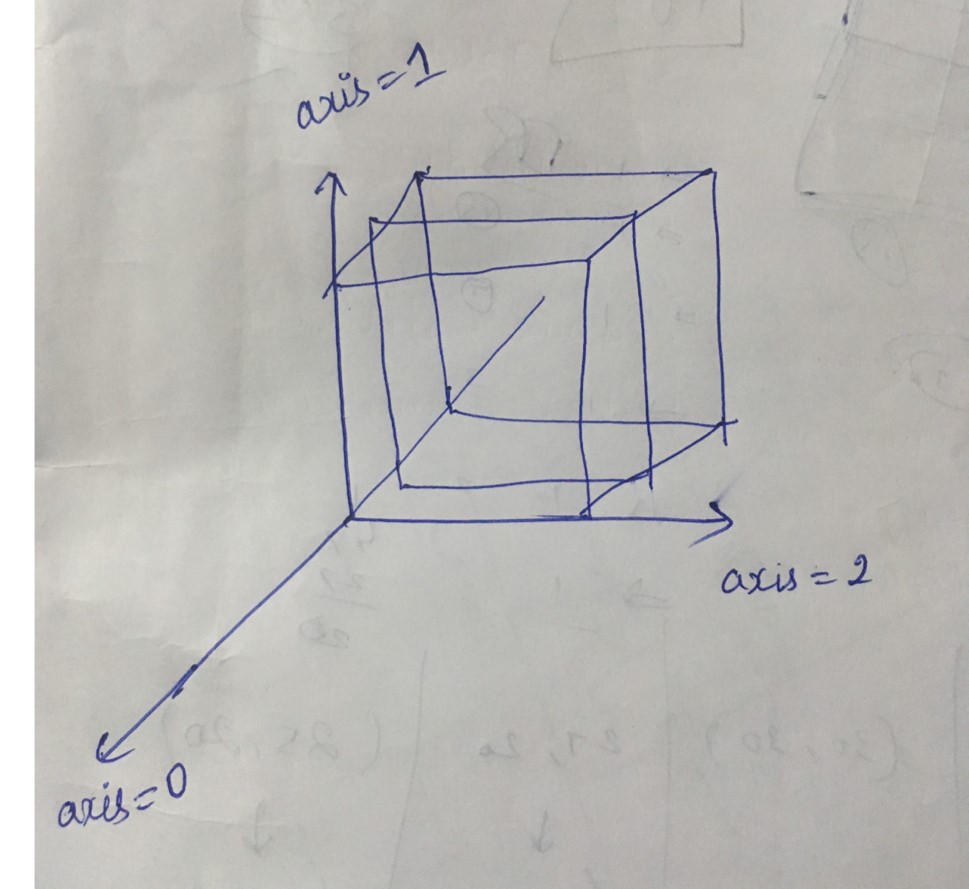 axis=1
axis=2
axis=0